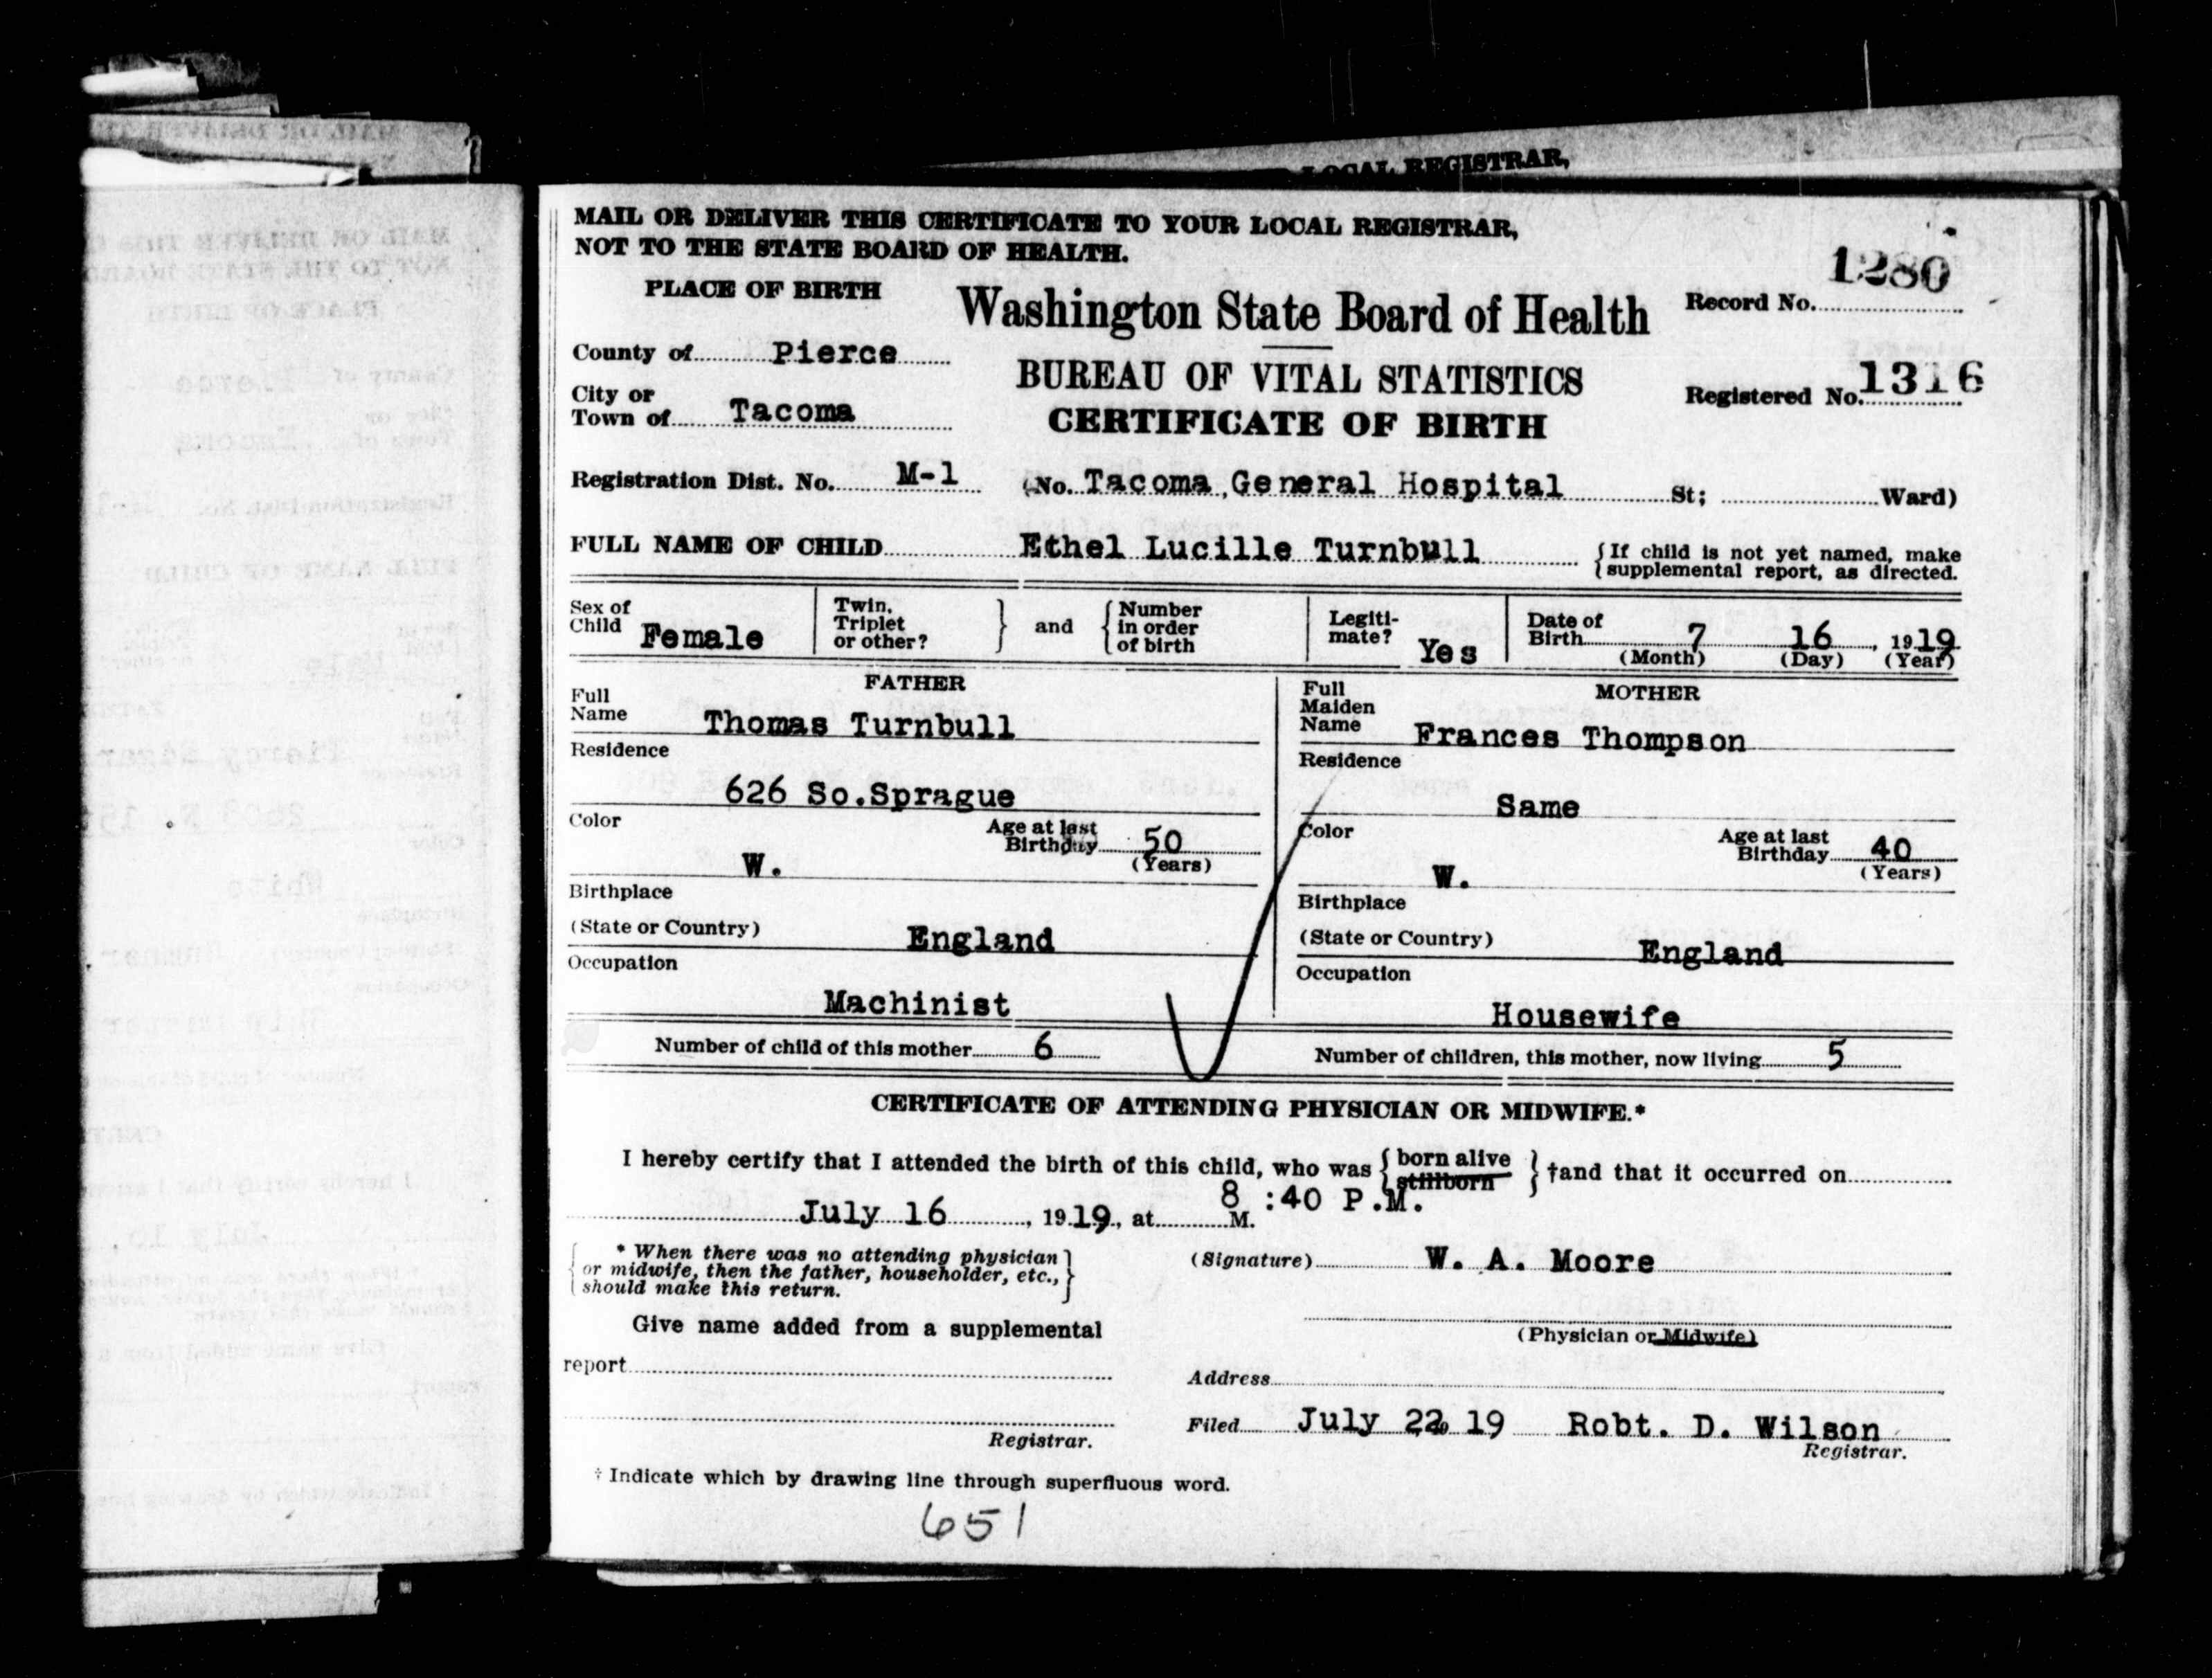 LOCAL REGISTRAR,
MAIL OR DELIVER THIS CERTIFICATE TO YOUR LOCAL REGISTRAR,
NOT TO THE STATE BOARD OF HEALTH.
1280
PLACE OF BIRTH
Washington State Board of Health
Record No.
County of Pierce
BUREAU OF VITAL STATISTICS
Registered No. 1316
City or
Town of Tacoma
CERTIFICATE OF BIRTH
Registration Dist. No. M-1 (No. Tacoma General Hospital St; Ward)
FULL NAME OF CHILD Ethel Lucille Turnbull
If child is not yet named, make
supplemental report, as directed.
Sex of
Child Female
Twin,
Triplet
or other?
and
Number
in order
of birth
Legiti-
mate? Yes
Date of
Birth 7 16, 1919
(Month) (Day) (Year)
FATHER
Full
Name Thomas Turnbull
Residence
626 So.Sprague
Color
W.
Age at last
Birthday 50
(Years)
Birthplace
(State or Country) England
Occupation
Machinist
MOTHER
Full
Maiden
Name Frances Thompson
Residence
Same
Color
W.
Age at last
Birthday 40
(Years)
Birthplace
(State or Country) England
Occupation
Housewife
Number of child of this mother 6
Number of children, this mother, now living 5
CERTIFICATE OF ATTENDING PHYSICIAN OR MIDWIFE.*
I hereby certify that I attended the birth of this child, who was { born alive stillborn } †and that it occurred on
July 16, 1919, at 8:40 P.M. M.
* When there was no attending physician
or midwife, then the father, householder, etc.,
should make this return.
(Signature) W. A. Moore
(Physician or Midwife)
Give name added from a supplemental
report
Address
Registrar.
Filed July 22 19 Robt. D. Wilson
Registrar.
† Indicate which by drawing line through superfluous word.
651